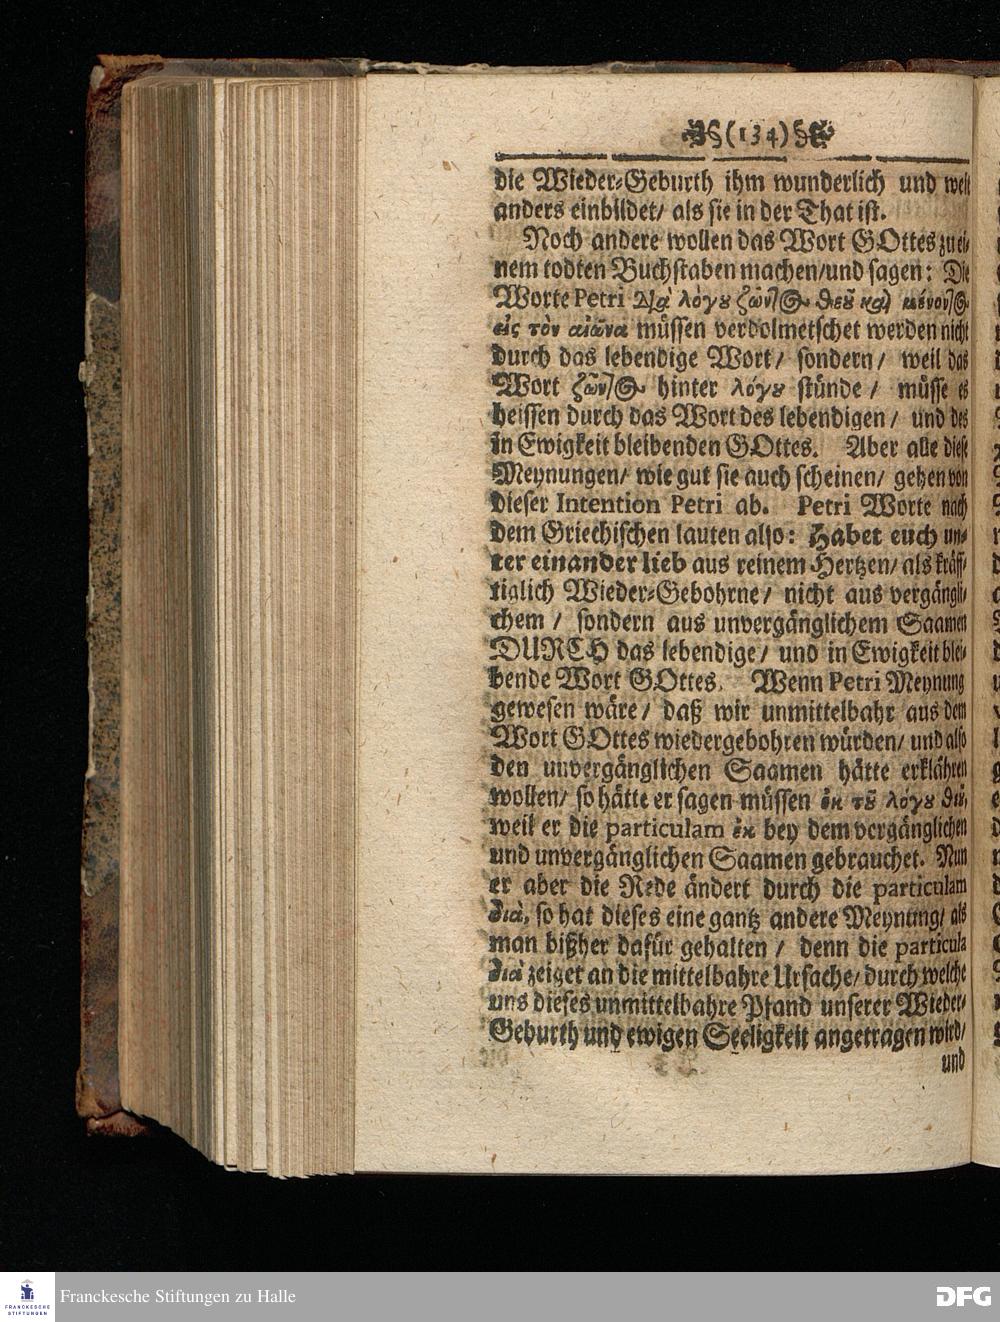 (134)
die Wieder-Geburth ihm wunderlich und weit
anders einbildet/ als sie in der That ist.
Noch andere wollen das Wort GOttes zu ei-
nem todten Buchstaben machen/und sagen: Die
Worte Petri Διὰ λόγου ζῶντος θεοῦ καὶ μένοντος
εἰς τὸν αἰῶνα müssen verdolmetschet werden nicht
durch das lebendige Wort/ sondern/ weil das
Wort ζῶντος hinter λόγου stünde/ müsse es
heissen durch das Wort des lebendigen/ und des
in Ewigkeit bleibenden GOttes. Aber alle diese
Meynungen/ wie gut sie auch scheinen/ gehen von
dieser Intention Petri ab. Petri Worte nach
dem Griechischen lauten also: Habet euch un-
ter einander lieb aus reinem Hertzen/ als kräff-
tiglich Wieder-Gebohrne/ nicht aus vergängli-
chem/ sondern aus unvergänglichem Saamen
DURCH das lebendige/ und in Ewigkeit blei-
bende Wort GOttes. Wenn Petri Meynung
gewesen wäre/ daß wir unmittelbahr aus dem
Wort GOttes wiedergebohren würden/ und also
den unvergänglichen Saamen hätte erklähren
wollen/ so hätte er sagen müssen ἐκ τοῦ λόγου θεοῦ,
weil er die particulam ἐκ bey dem vergänglichen
und unvergänglichen Saamen gebrauchet. Nun
er aber die Rede ändert durch die particulam
διὰ, so hat dieses eine gantz andere Meynung/ als
man bißher dafür gehalten/ denn die particula
διὰ zeiget an die mittelbahre Ursache/ durch welche
uns dieses unmittelbahre Pfand unserer Wieder-
Geburth und ewigen Seeligkeit angetragen wird/
und
FRANCKESCHE
STIFTUNGEN
Franckesche Stiftungen zu Halle
DFG